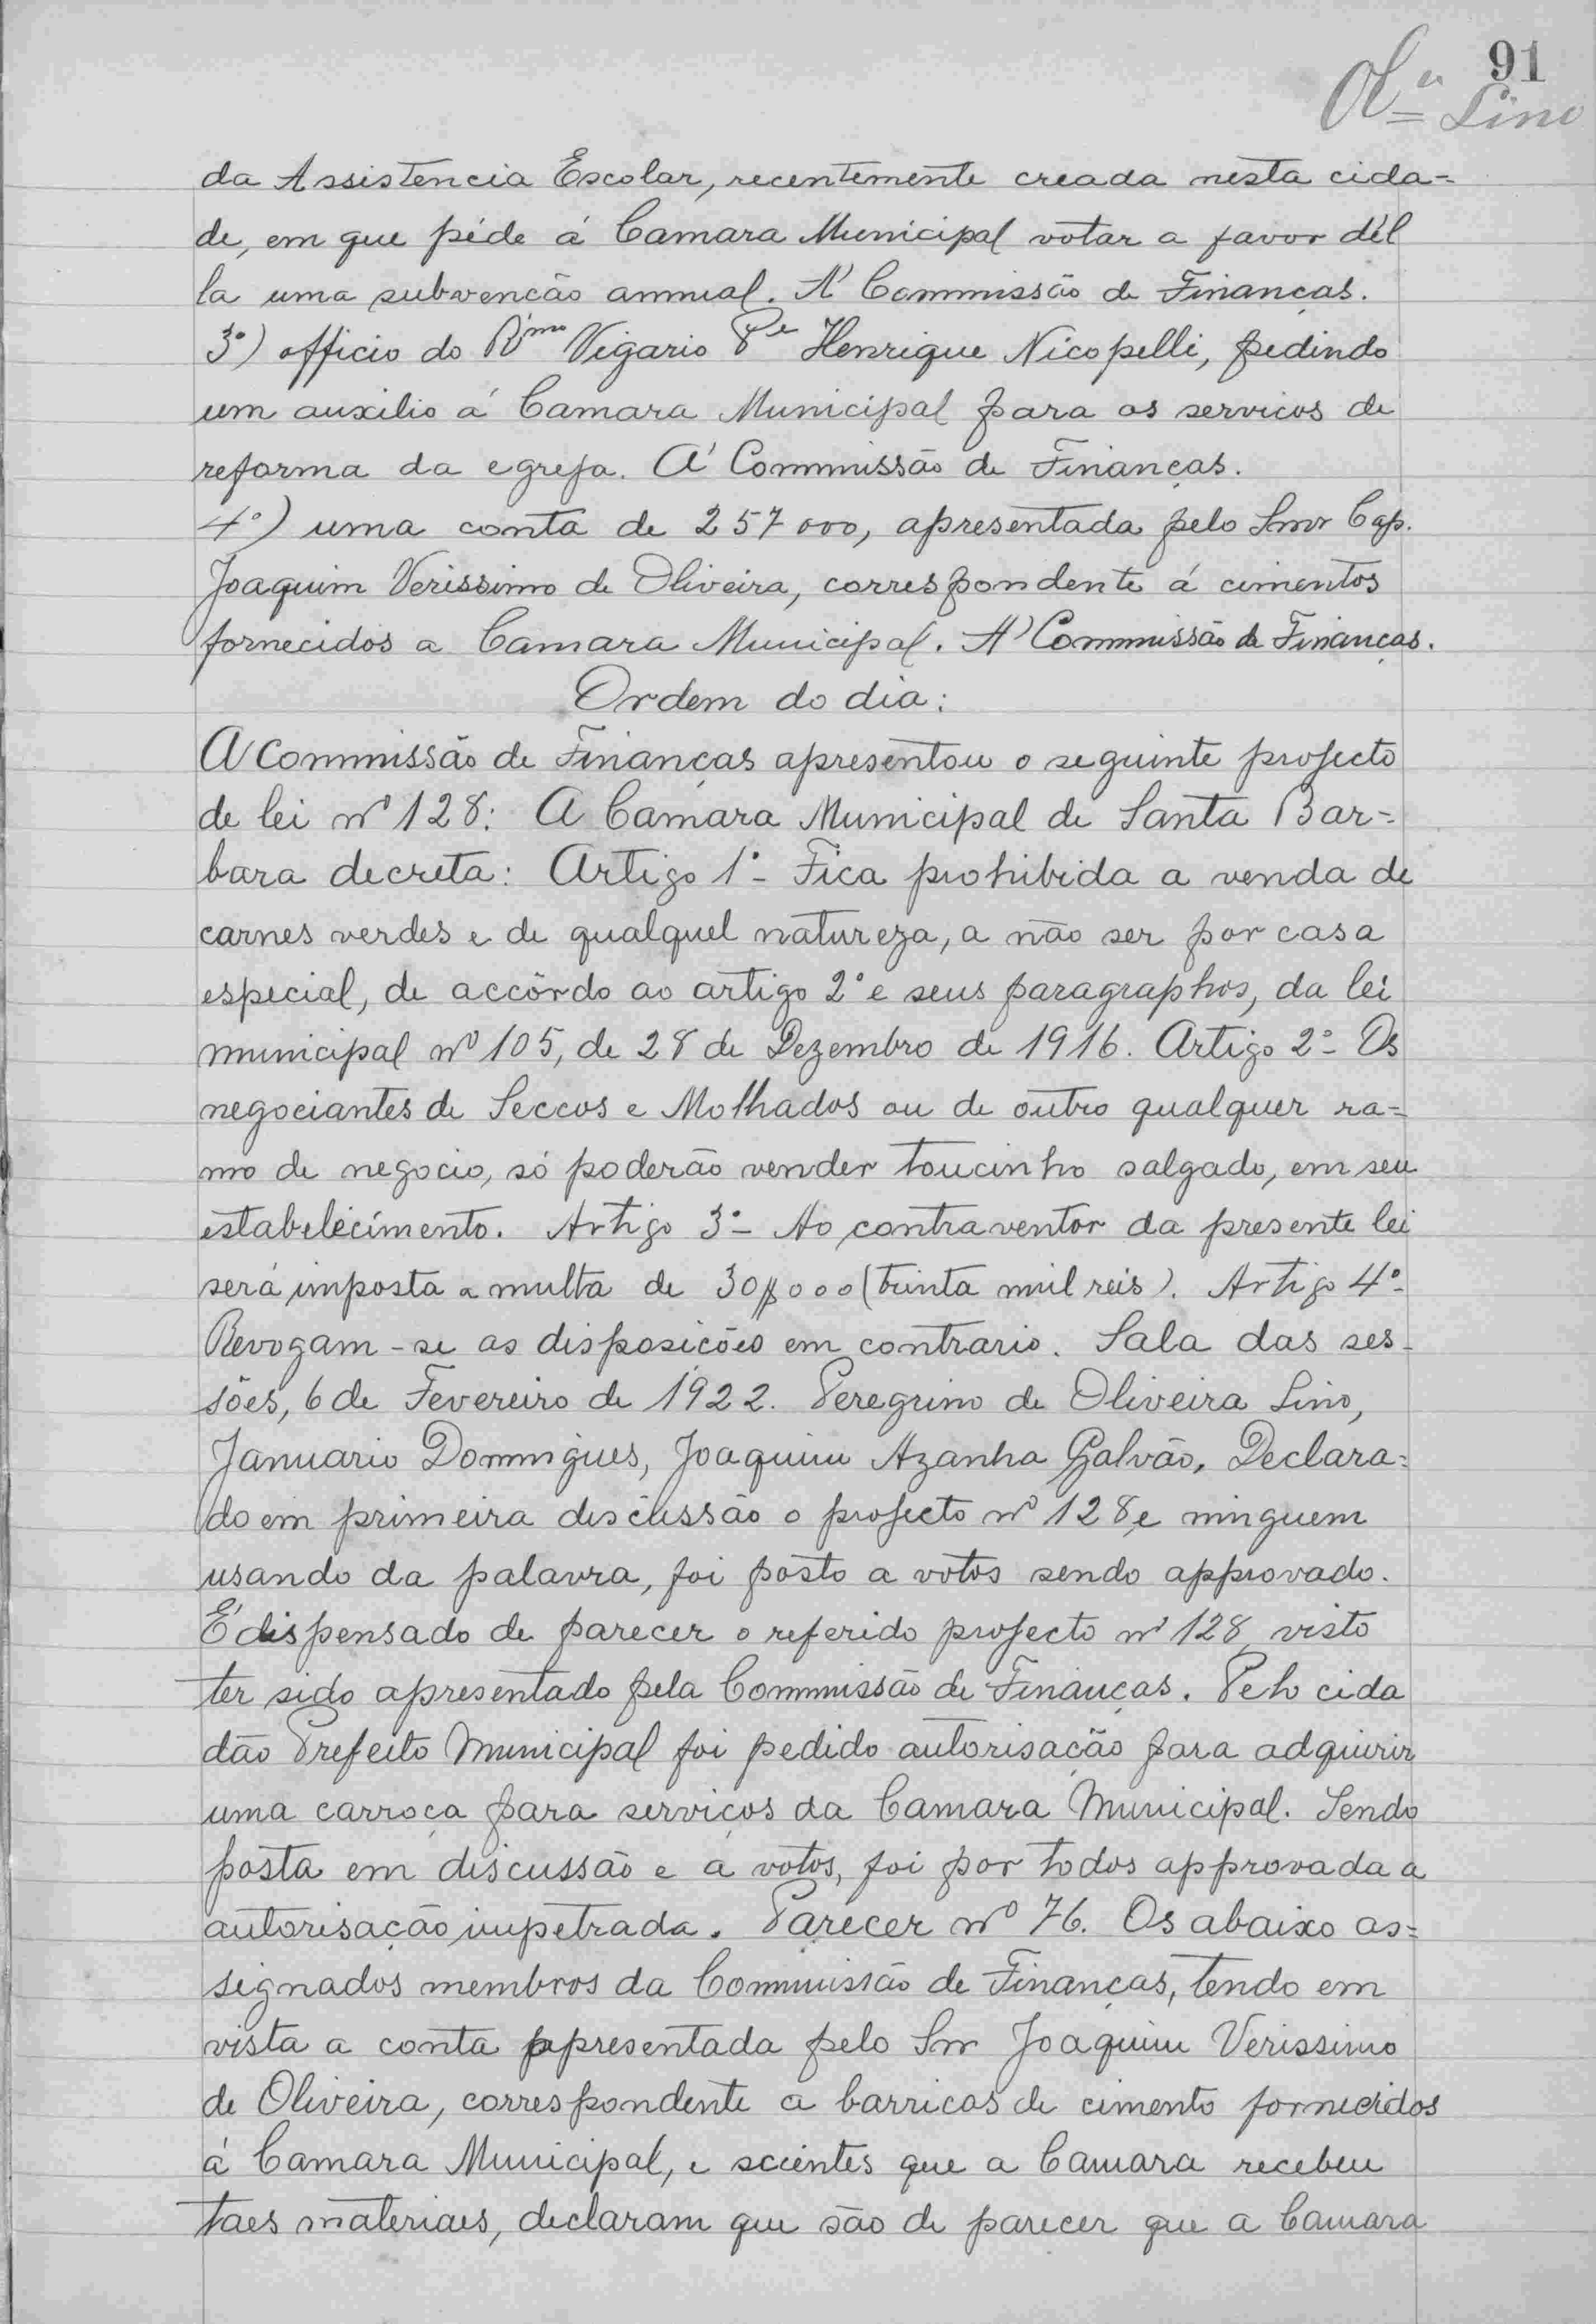 91
Olª Lino
da Assistencia Escolar, recentemente creada nesta cida=
de, em que péde á Camara Municipal votar a favor dél
la uma subvencão annual. Á Commissão de Finanças.
3º) officio do Rmo Vigario Pe Henrique Nicopelli, pedindo
um auxilio á Camara Municipal para os servicos de
reforma da egreja. Á Commissão de Finanças.
4º) uma conta de 257000, apresentada pelo Snr Cap.
Joaquim Verissimo de Oliveira, correspondente á cimentos
fornecidos a Camara Municipal. Á Commissão de Finanças.
Ordem do dia:
A Commissão de Finanças apresentou o seguinte projecto
de lei nº 128: A Camara Municipal de Santa Bar=
bara decreta: Artigo 1º- Fica prohibida a venda de
carnes verdes e de qualquel natureza, a não ser por casa
especial, de accôrdo ao artigo 2º e seus paragraphos, da lei
municipal nº 105, de 28 de Dezembro de 1916. Artigo 2º- Os
negociantes de Seccos e Molhados ou de outro qualquer ra=
mo de negocio, só poderão vender toucinho salgado, em seu
estabelecimento. Artigo 3º- Ao contraventor da presente lei
será imposta a multa de 30$000 (trinta mil reis). Artigo 4º-
Revogam-se as disposicões em contrario. Sala das ses-
sões, 6 de Fevereiro de 1922. Peregrino de Oliveira Lino,
Januario Domingues, Joaquim Azanha Galvão. Declara=
do em primeira discussão o projecto nº 128 e ninguem
usando da palavra, foi posto a votos sendo approvado.
É dispensado de parecer o referido projecto nº 128, visto
ter sido apresentado pela Commissão de Finanças. Pelo cida
dão Prefeito Municipal foi pedido autorisação para adquirir
uma carroça para serviços da Camara Municipal. Sendo
posta em discussão e a votos, foi por todos approvada a
autorisação impetrada. Parecer nº 76. Os abaixo as=
signados membros da Commissão de Finanças, tendo em
vista a conta appresentada pelo Snr Joaquim Verissimo
de Oliveira, correspondente a barricas de cimento fornecidos
á Camara Municipal, e scientes que a Camara recebeu
taes materiaes, declaram que são de parecer que a Camara